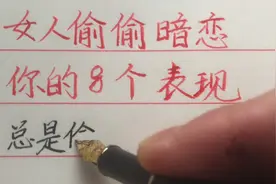 女人偷偷暗恋
你的8个表现
总是偷